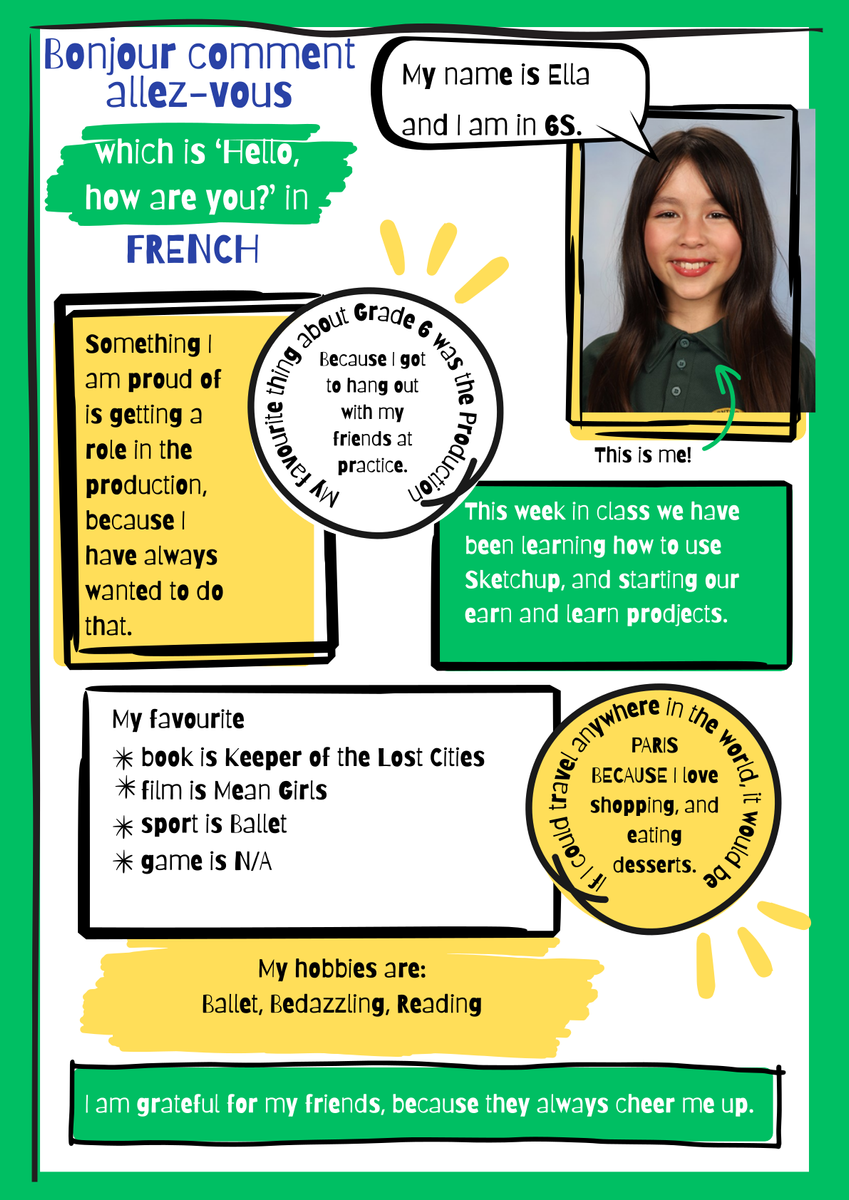 Bonjour comment
allez-vous
which is ‘Hello,
how are you?’ in
FRENCH
My name is Ella
and I am in 6S.
This is me!
Something I
am proud of
is getting a
role in the
production,
because I
have always
wanted to do
that.
My favourite thing about Grade 6 was the Production
Because I got
to hang out
with my
friends at
practice.
This week in class we have
been learning how to use
Sketchup, and starting our
earn and learn prodjects.
My favourite
book is Keeper of the Lost Cities
film is Mean Girls
sport is Ballet
game is N/A
If I could travel anywhere in the world, it would be
PARIS
BECAUSE I love
shopping, and
eating
desserts.
My hobbies are:
Ballet, Bedazzling, Reading
I am grateful for my friends, because they always cheer me up.